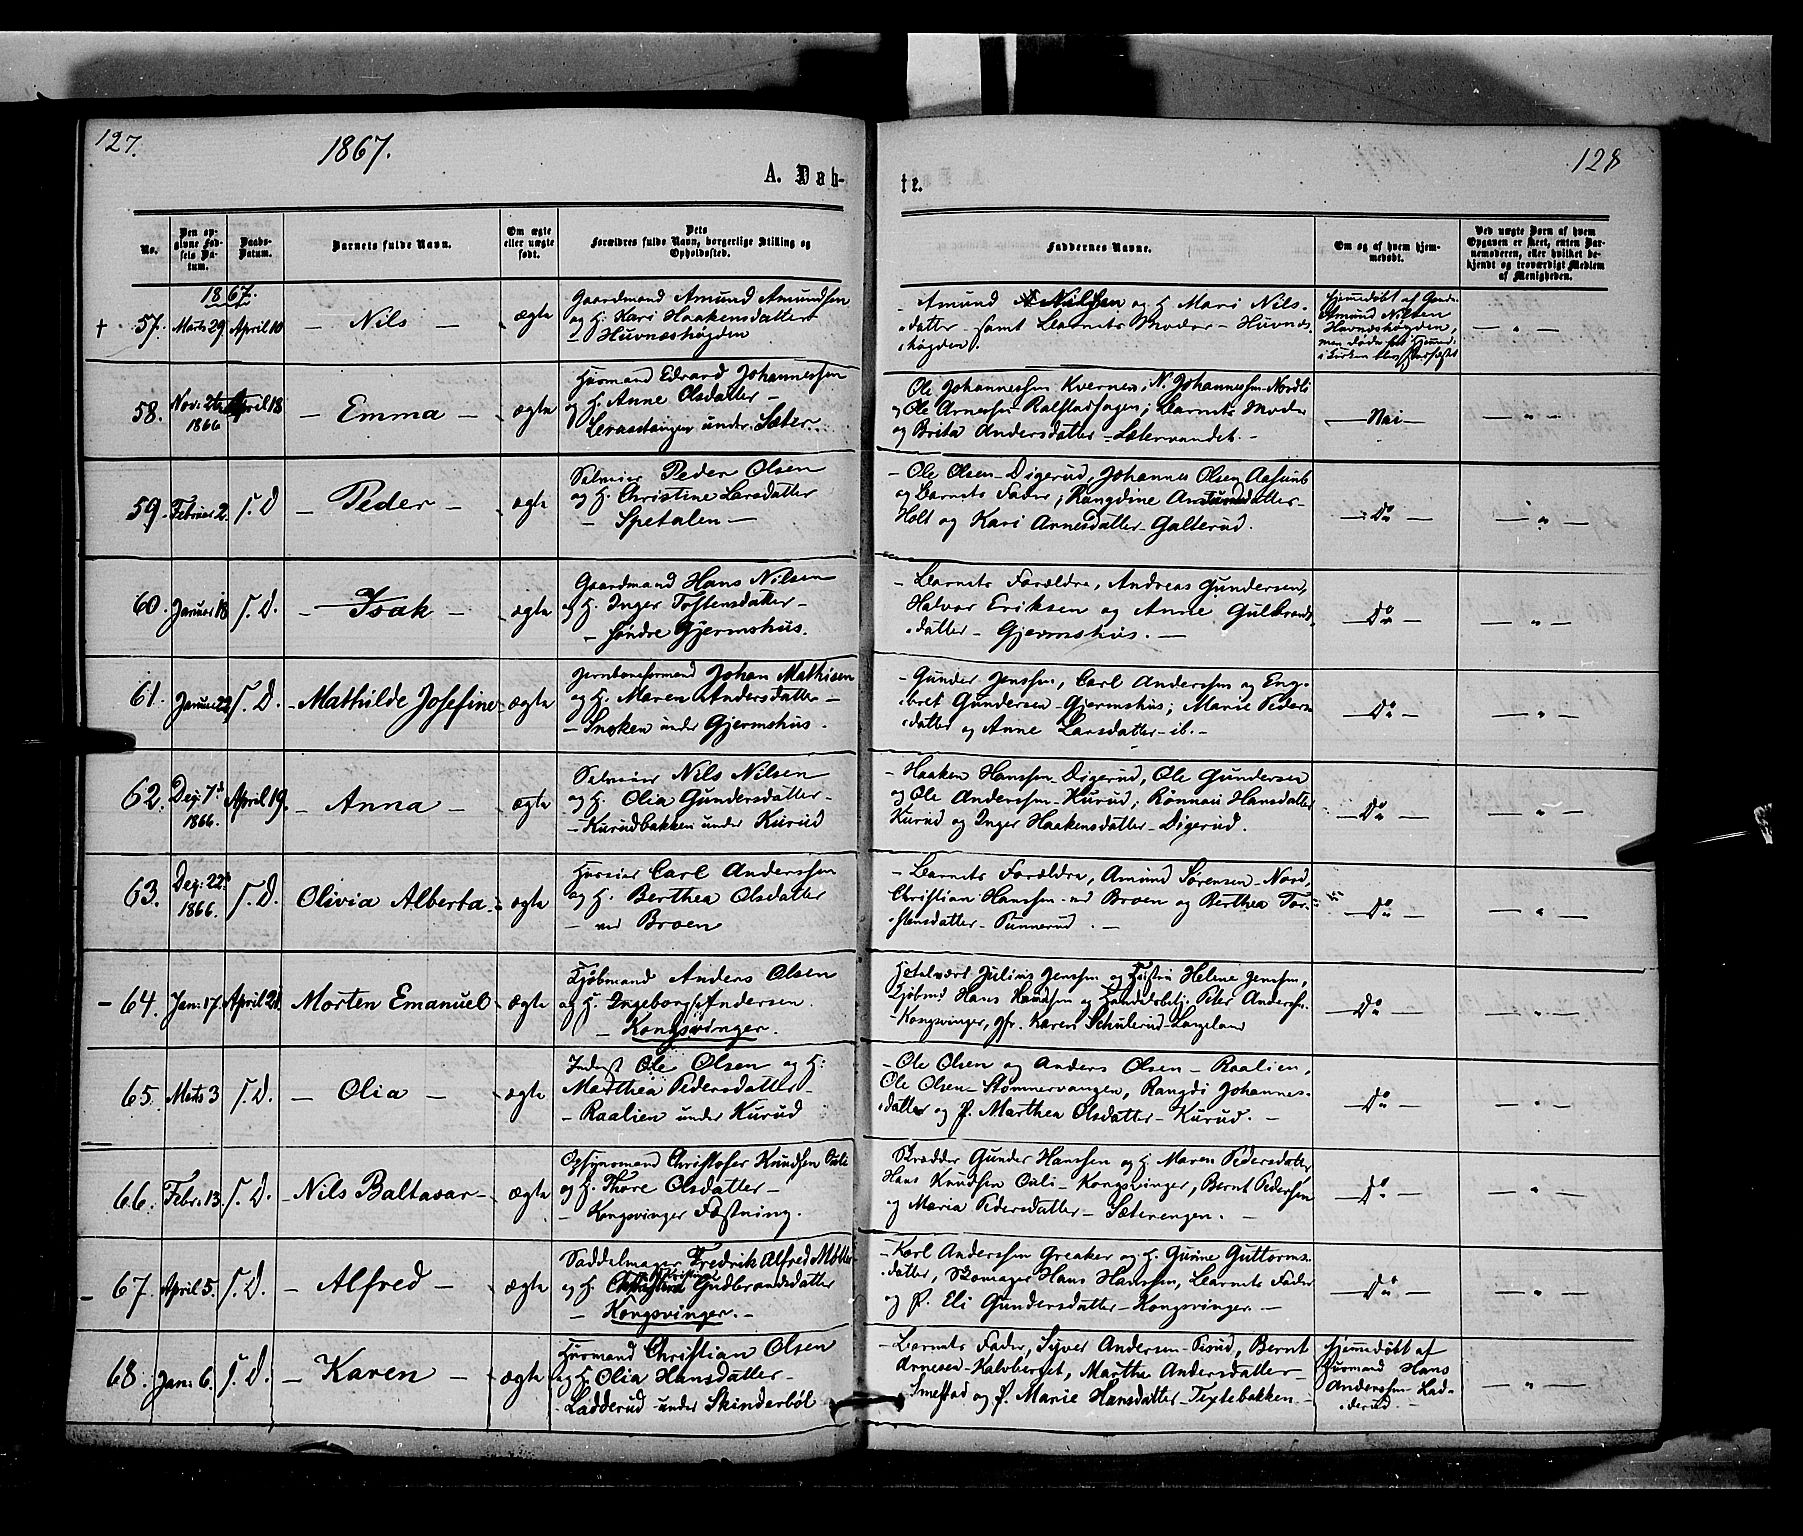 127.
1867.
128
A. Døb-
te.
No.
Den op-
givne Fød-
sels Da-
tum.
Daabs-
Datum.
Barnets fulde Navn.
Om ægte
eller uægte
født.
Dets
Forældres fulde Navn, borgerlige Stilling og
Opholdssted.
Faddernes Navne.
Om og af hvem hjem-
medøbt.
Ved uægte Børn af hvem
Opgaven er skeet, enten Bar-
nemoderen, eller hvilket be-
kjendt og troværdigt Medlem
af Menigheden.
1867.
+ 57. Marts 29 April 10 — Nils — ægte
Gaardmand Amund Amundsen
og H. Kari Haakensdatter
— Huvnæshøgden
Amund Nilsen og H. Mari Nils-
datter samt Barnets Moder — Huvnæs-
høgden.
Hjemmedøbt af
Amund Nilsen
Huvnæshøgden,
— " —
58. Nov: 1866 April 18 — Emma — ægte
Husmand Edvard Johannessen
og H. Anne Olsdatter —
under Sæter.
Ole Johannessen Kvernen, N. Johannessen Nordli
Ole Arnesen Ralfstadhagen; Barnets Moder
og Brita Andersdatter — Sætervandet. —
— Nei —
— " —
59. Februar 2. s. D — Peder — ægte
Selveier Peder Olsen
og H. Christine Larsdatter
— Spetalen —
— Ole Olsen — Digerud, Johannes Olsen Aasund
og Barnets Fader; Rangdine Amundsdatter —
Holt og Kari Arnesdatter — Galterud.
— Do —
— " —
60. Januar 18 s. D. — Isak — ægte
Gaardmand Hans Nilsen
og H. Inger Tostensdatter —
— søndre Gjermshus.
— Barnets Forældre, Andreas Gundersen,
Halvor Eriksen og Anne Gulbrands-
datter — Gjermshus. —
— Do —
— " —
61. Januar 22 s. D. — Mathilde Josefine — ægte
Jernbaneformand Johan Mathisen
og H. Maren Andersdatter —
— Snoken under Gjermshus.
— Gunder Jenssen, Carl Anderssen og Eng-
bret Gundersen — Gjermshus; Marie Peders-
datter og Anne Larsdatter — ib. —
— Do —
— " —
62. Dez: 7d 1866 April 19. — Anna — ægte
Selveier Nils Nilsen
og H. Olia Gundersdatter —
— Kurudbakken under Kurud
— Haaken Hanssen — Digerud, Ole Gundersen
og Ole Anderssen — Kurud; Rønnaug Hansdatter
Kurud og Inger Haakensdatter — Digerud.
— Do —
— " —
63. Dez: 22d 1866. s. D. Olivia Alberta — ægte
Huseier Carl Anderssen
og H. Berthea Olsdatter
— ved Broen
— Barnets Forældre, Amund Sørensen — Nord,
Christian Hanssen — ved Broen og Berthea Tor-
stensdatter — Punnerud. —
— Do —
— " —
— 64. Jan: 17. April 21. Morten Emanuel — ægte
Kjøbmand Anders Olsen
og H. Ingeborg Andersen.
— Kongsvinger.
Hotelvært Julius Jenssen og Hustru Helene Jenssen,
Kjøbmd Hans Hanssen og Handelsbetj. Peter Anderssen
— Kongsvinger, Jfr. Karen Schulerud — Langeland
— Do —
— " —
65. Marts 3 s. D. — Olia — ægte
Inderst Ole Olsen og H:
Marthea Pedersdatter
— Raalien under Kurud
— Ole Olsen og Anders Olsen — Raalien,
Ole Olsen — Stommervangen, Rangdi Johannes-
datter og P. Marthea Olsdatter — Kurud. —
— Do —
— " —
66. Febr: 13. s. D. — Nils Baltasar — ægte
Opsynsmand Christofer Knudsen Ouli
og H. Thore Olsdatter —
— Kongsvinger Fæstning.
Skrædder Gunder Hanssen og H. Maren Pedersdatter,
Hans Knudsen Ouli — Kongsvinger, Bernt Pedersen
og Maria Pedersdatter — Sæterengen. —
— Do —
— " —
— 67. April 5. s. D. — Alfred — ægte
Saddelmager Fredrik Alfred Møller
og H. Gudbrandsdatter
— Kongsvinger. —
— Karl Anderssen Greaker og H. Gurine Guttorms-
datter, Skomager Hans Hanssen, Barnets Fader
og P. Eli Gundersdatter — Kongsvinger. —
— Do —
— " —
68. Jan: 6. s. D. — Karen — ægte
Husmand Christian Olsen
og H. Olia Hansdatter —
— Ladderud under Skinderbøl
— Barnets Fader, Syver Andersen — Bernt
Arnesen — Kalvberget, Marthe Andersdatter —
Smestad og P. Marie Hansdatter — Textebakken. —
Hjemmedøbt af
Husmand Hans
Anderssen — Lad-
derud —
— " —